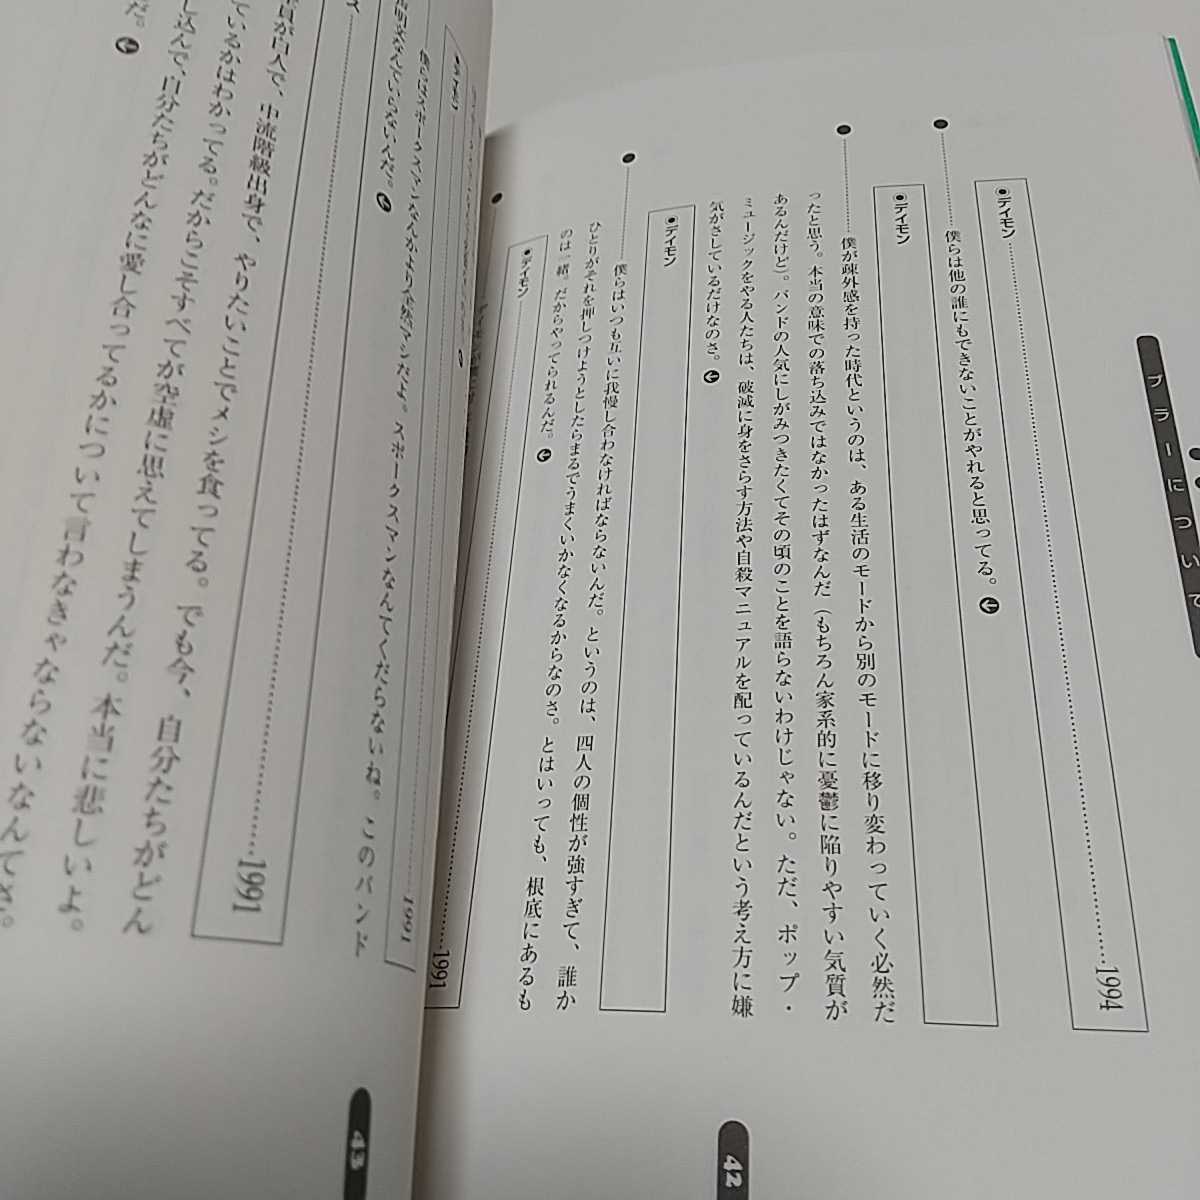 ブラーについて
●デイモン……1994
僕らは他の誰にもできないことがやれると思ってる。
●デイモン
僕が疎外感を持った時代というのは、ある生活のモードから別のモードに移り変わっていく必然だ
ったと思う。本当の意味での落ち込みではなかったはずなんだ（もちろん家系的に憂鬱に陥りやすい気質が
あるんだけど）。バンドの人気にしがみつきたくてその頃のことを語らないわけじゃない。ただ、ポップ・
ミュージックをやる人たちは、破滅に身をさらす方法や自殺マニュアルを配っているんだという考え方に嫌
気がさしているだけなのさ。
●デイモン
僕らはいつも互いに我慢し合わなければならないんだ。というのは、四人の個性が強すぎて、誰か
ひとりがそれを押しつけようとしたらまるでうまくいかなくなるからなのさ。とはいっても、根底にあるも
のは一緒。だからやってられるんだ。
●デイモン……1991
42
●デイモン……1991
僕らはスポークスマンなんかより全然マシだよ。スポークスマンなんてくだらないね。このバンド
明文なんていらないんだ。
ス……1991
員が白人で、中流階級出身で、やりたいことでメシを食ってる。でも今、自分たちがどん
ているかはわかってる。だからこそすべてが空虚に思えてしまうんだ。本当に悲しいよ。
し込んで、自分たちがどんなに愛し合ってるかについて言わなきゃならないなんてさ。
だ。
43